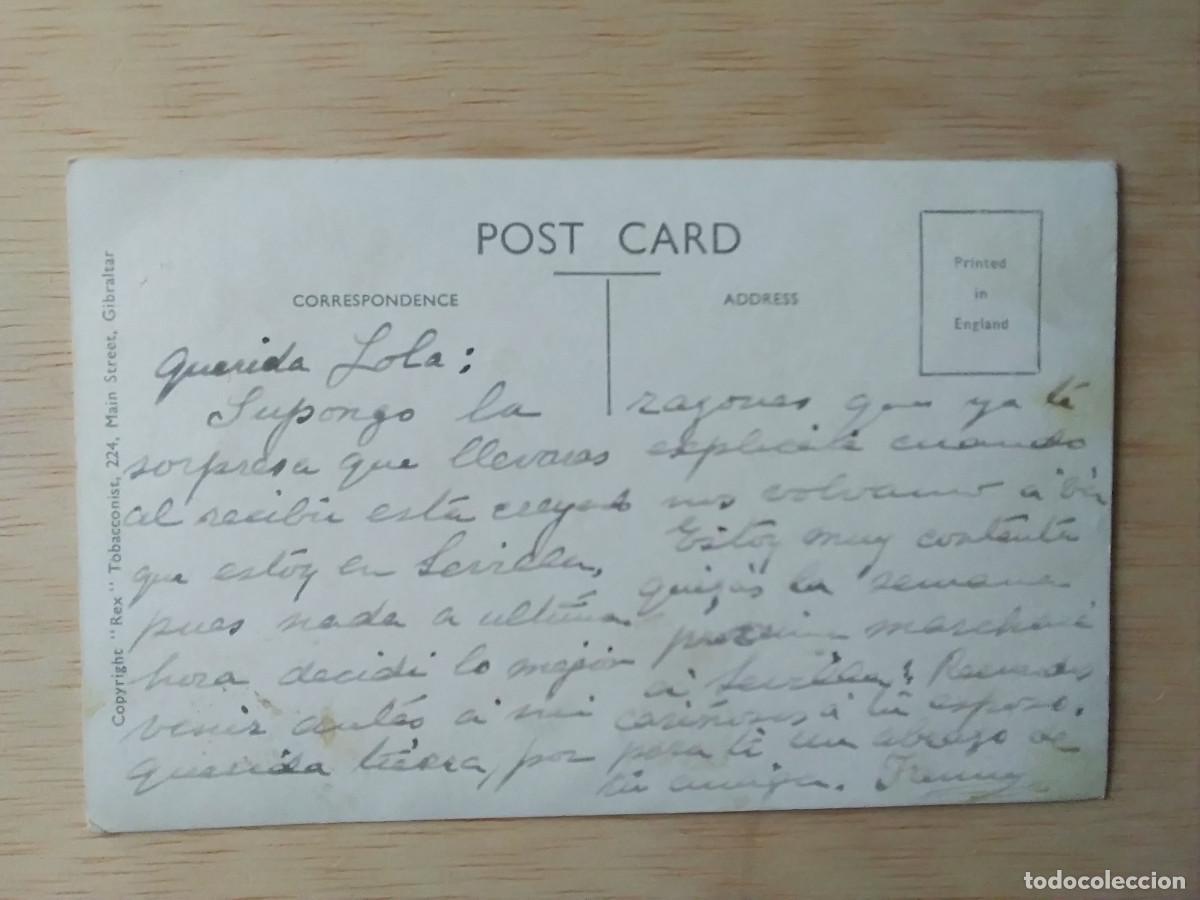 POST CARD
CORRESPONDENCE
ADDRESS
Printed
in
England
Copyright "Rex" Tobacconist, 224, Main Street, Gibraltar
Querida Lola:
Supongo la
sorpresa que llevaras
al recibir está creyendo
que estoy en Sevilla,
pues nada a ultima
hora decidi lo mejor
venir antes a mi
querida tierra, por
razones que ya te
explicaré cuando
nos volvamos a ver
Estoy muy contenta
quizás la semana
proxima marcharé
a Sevilla; Recuerdos
cariñosos a tu esposo,
para ti un abrazo de
tu amiga.
todocoleccion